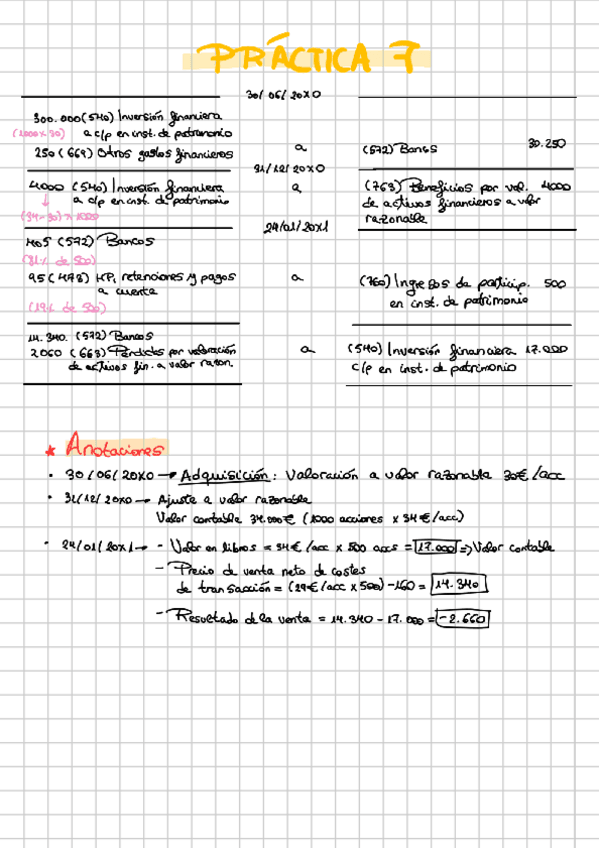 PRÁCTICA 7
30/06/20X0
300.000 (540) Inversión financiera
(1000 x 30) a c/p en inst. de patrimonio
250 (669) Otros gastos financieros a (572) Bancos 30.250
31/12/20X0
4000 (540) Inversión financiera a (763) Beneficios por val. 4000
a c/p en inst. de patrimonio de activos financieros a valor
(34-30) x 1000 razonable
24/01/20X1
405 (572) Bancos
(81% de 500)
95 (473) HP, retenciones y pagos a (760) Ingresos de particip. 500
a cuenta en inst. de patrimonio
(19% de 500)
14.340. (572) Bancos a (540) Inversión financiera 17.000
2060 (663) Pérdidas por valoración c/p en inst. de patrimonio
de activos fin. a valor razon.
* Anotaciones
• 30/06/20X0 → Adquisición: Valoración a valor razonable 30€/acc
• 31/12/20X0 → Ajuste a valor razonable
Valor contable 34.000€ (1000 acciones x 34€/acc)
• 24/01/20X1 → - Valor en libros = 34€/acc x 500 accs = 17.000 => Valor contable
- Precio de venta neto de costes
de transacción = (29€/acc x 500) - 160 = 14.340
- Resultado de la venta = 14.340 - 17.000 = -2.660